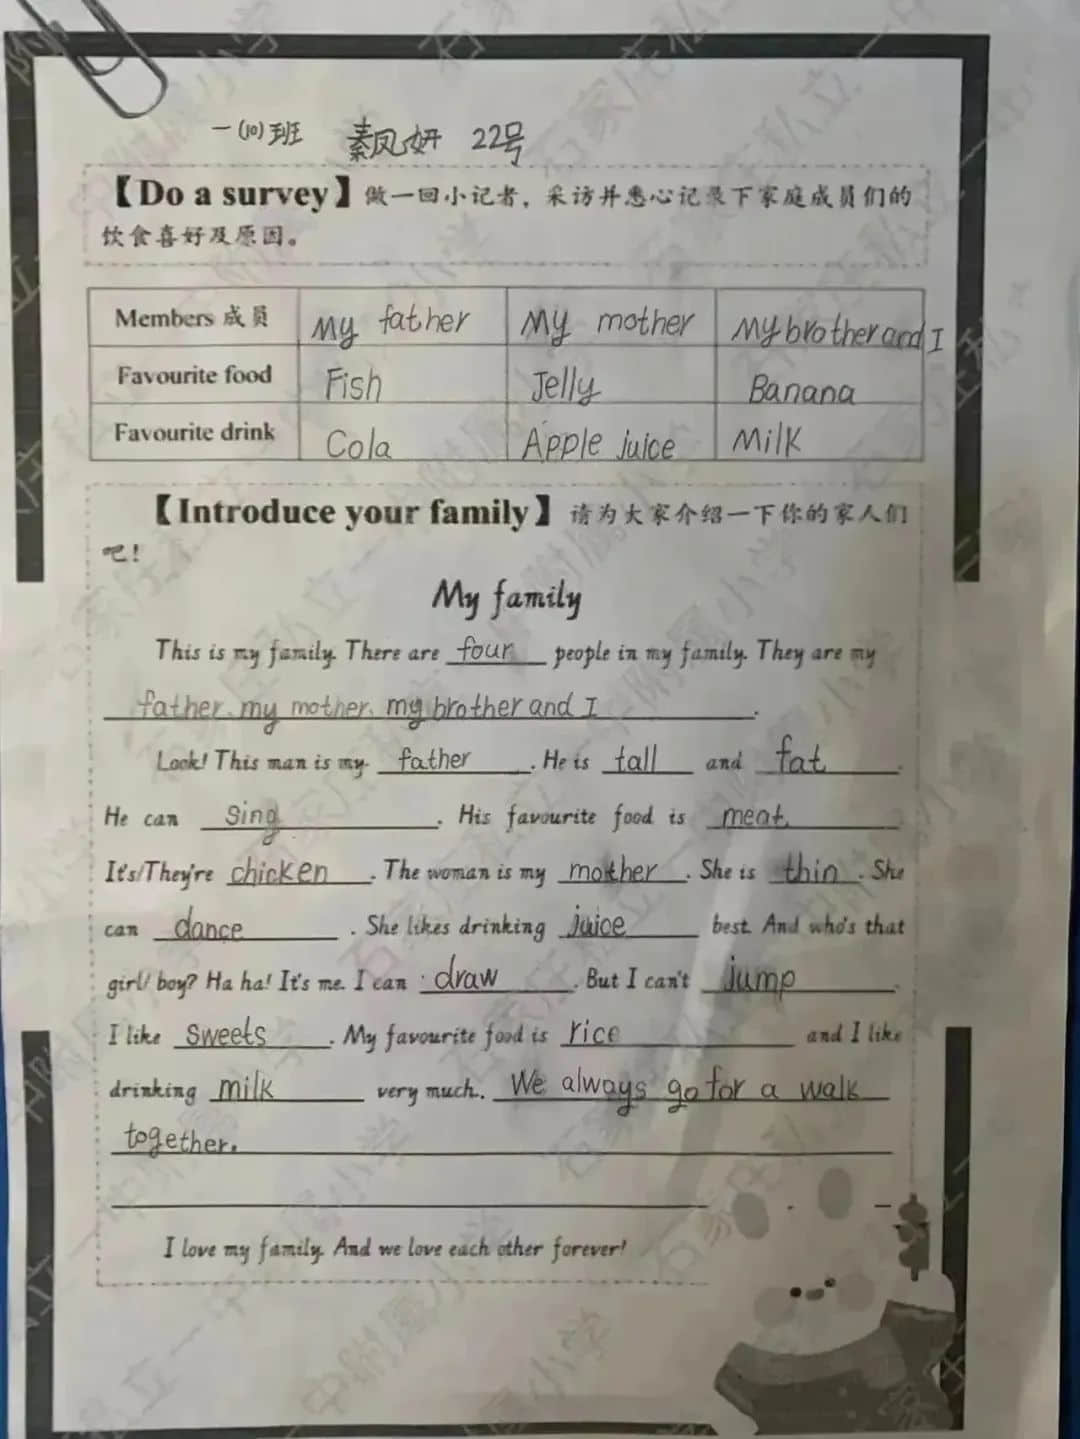 一(10)班 秦凤妍 22号
【Do a survey】做一回小记者，采访并悉心记录下家庭成员们的
饮食喜好及原因。
Members 成员 My father My mother My brother and I
Favourite food Fish Jelly Banana
Favourite drink Cola Apple juice Milk
【Introduce your family】请为大家介绍一下你的家人们
吧！
My family
This is my family. There are four people in my family. They are my
father、my mother、my brother and I.
Look! This man is my father. He is tall and fat.
He can sing. His favourite food is meat.
It's/They're chicken. The woman is my mother. She is thin. She
can dance. She likes drinking juice best. And who's that
girl/boy? Ha ha! It's me. I can draw. But I can't jump.
I like sweets. My favourite food is rice and I like
drinking milk very much. We always go for a walk
together.
I love my family. And we love each other forever!
石家庄私立一中附属小学